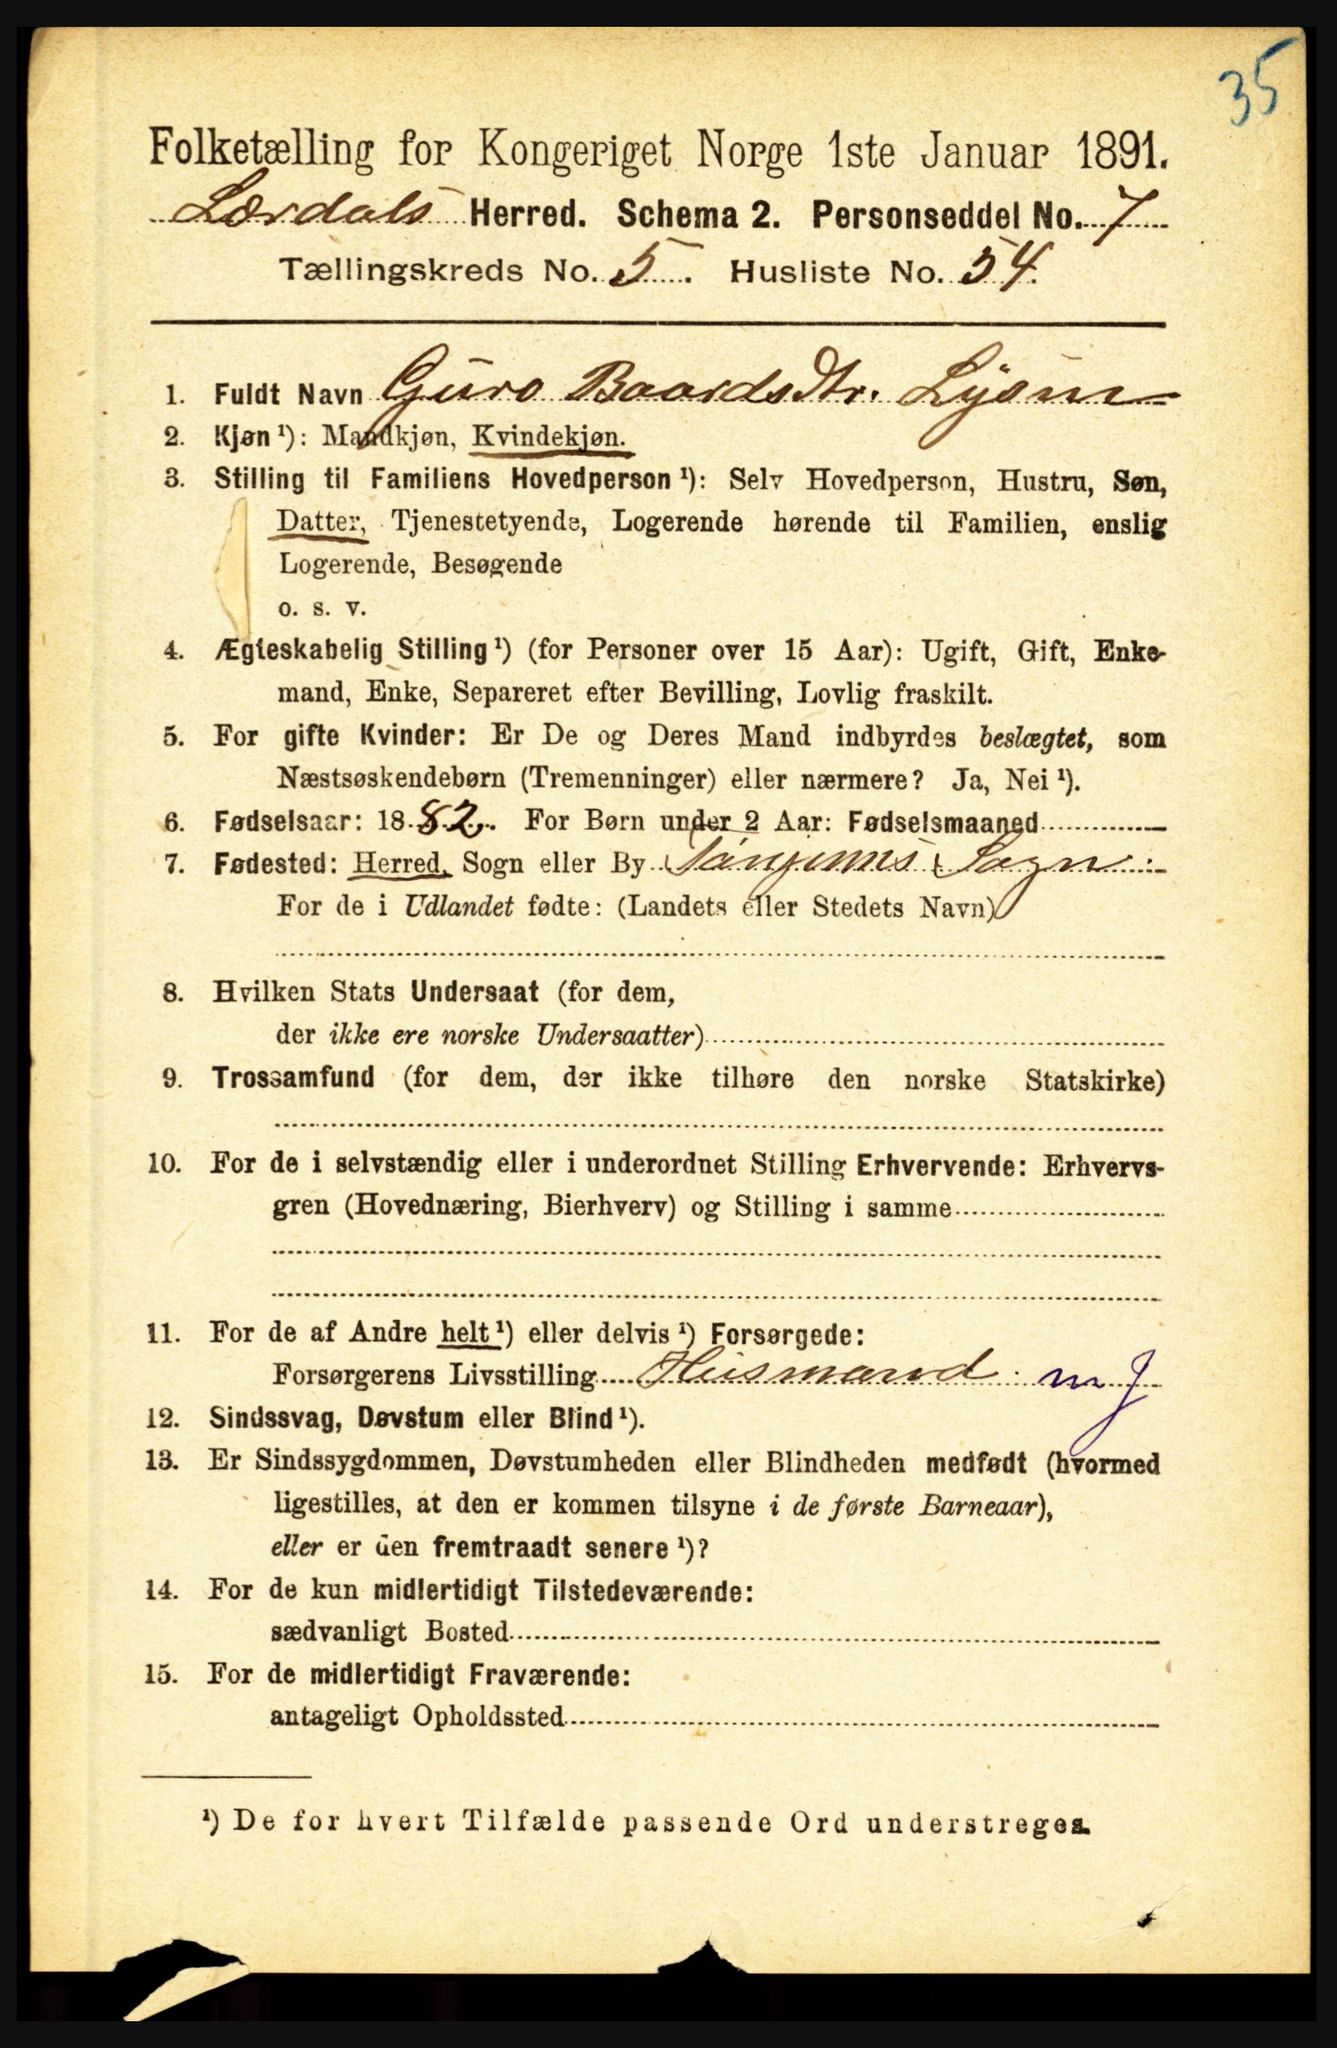 35
Folketælling for Kongeriget Norge 1ste Januar 1891.
Lærdals Herred. Schema 2. Personseddel No. 7
Tællingskreds No. 5. Husliste No. 54.
1. Fuldt Navn Guro Baardsdtr. Lysne
2. Kjøn ¹): Mandkjøn, Kvindekjøn.
3. Stilling til Familiens Hovedperson ¹): Selv Hovedperson, Hustru, Søn,
Datter, Tjenestetyende, Logerende hørende til Familien, enslig
Logerende, Besøgende
o. s. v.
4. Ægteskabelig Stilling ¹) (for Personer over 15 Aar): Ugift, Gift, Enke-
mand, Enke, Separeret efter Bevilling, Lovlig fraskilt.
5. For gifte Kvinder: Er De og Deres Mand indbyrdes beslægtet, som
Næstsøskendebørn (Tremenninger) eller nærmere? Ja, Nei ¹).
6. Fødselsaar: 1882. For Børn under 2 Aar: Fødselsmaaned
7. Fødested: Herred, Sogn eller By Tønjums Sogn
For de i Udlandet fødte: (Landets eller Stedets Navn)
8. Hvilken Stats Undersaat (for dem,
der ikke ere norske Undersaatter)
9. Trossamfund (for dem, der ikke tilhøre den norske Statskirke)
10. For de i selvstændig eller i underordnet Stilling Erhvervende: Erhvervs-
gren (Hovednæring, Bierhverv) og Stilling i samme
11. For de af Andre helt ¹) eller delvis ¹) Forsørgede:
Forsørgerens Livsstilling Husmand m J
12. Sindssvag, Døvstum eller Blind ¹).
13. Er Sindssygdommen, Døvstumheden eller Blindheden medfødt (hvormed
ligestilles, at den er kommen tilsyne i de første Barneaar),
eller er den fremtraadt senere ¹)?
14. For de kun midlertidigt Tilstedeværende:
sædvanligt Bosted
15. For de midlertidigt Fraværende:
antageligt Opholdssted
¹) De for hvert Tilfælde passende Ord understreges.